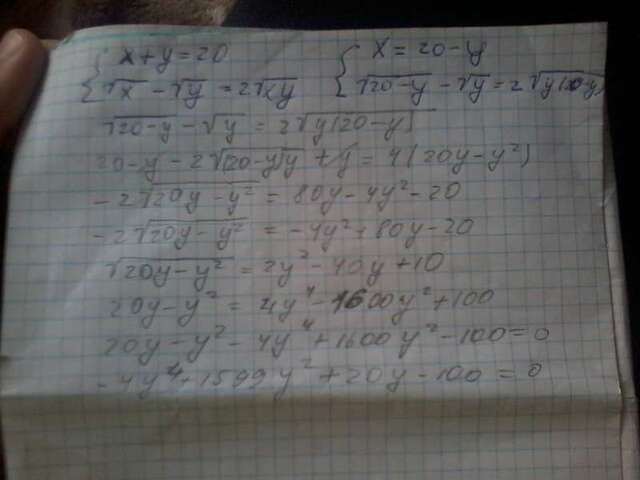 { x + y = 20 { x = 20 - y
{ √x - √y = 2√xy { √20-y - √y = 2√y(20-y)
√20-y - √y = 2√y(20-y)
20-y - 2√(20-y)y + y = 4(20y-y²)
-2√20y-y² = 80y-4y²-20
-2√20y-y² = -4y²+80y-20
√20y-y² = 2y²-40y+10
20y-y² = 4y⁴-1600y²+100
20y-y²-4y⁴+1600y²-100=0
-4y⁴+1599y²+20y-100=0